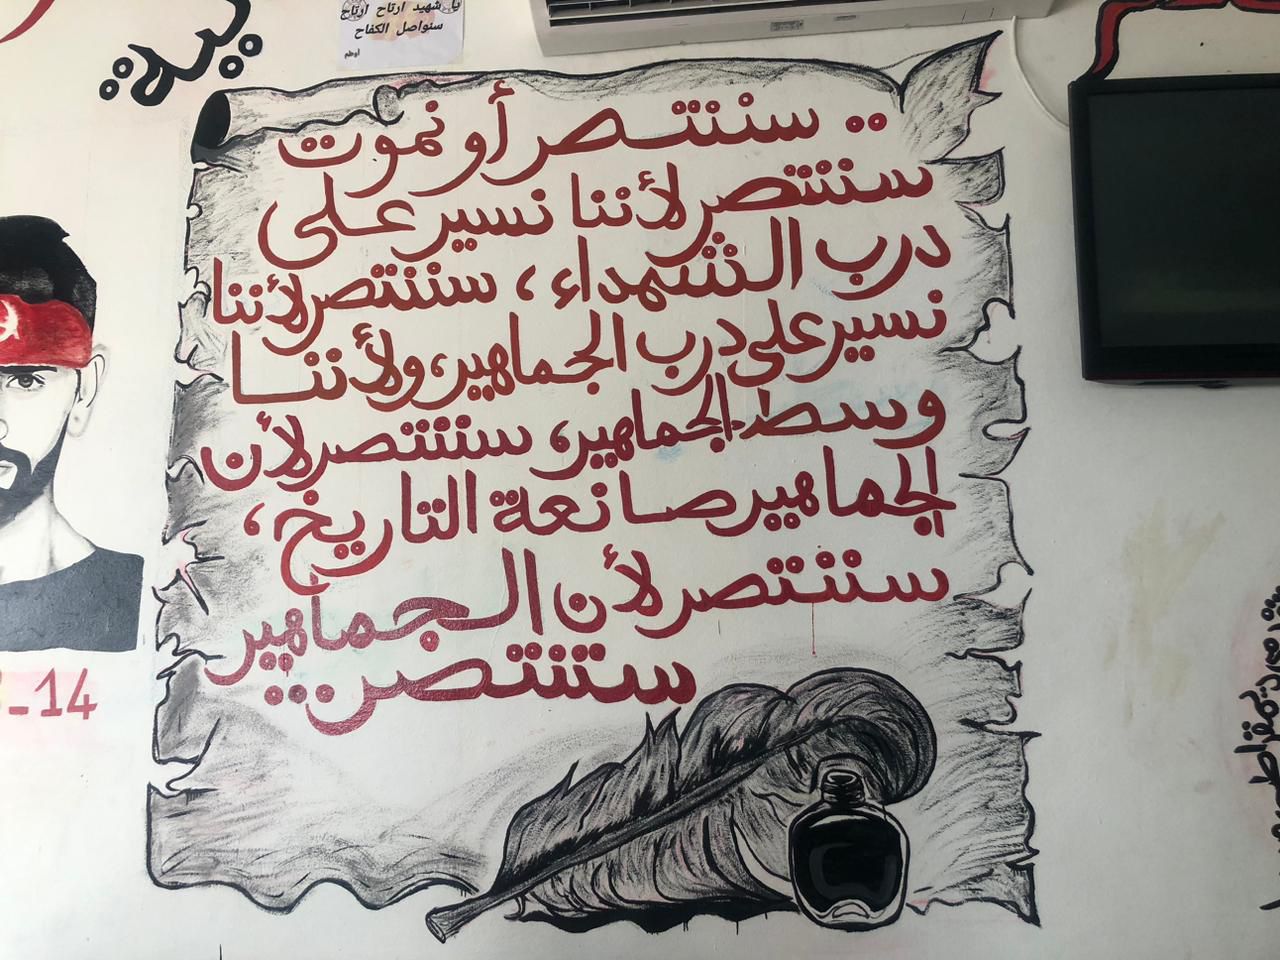 يا شهيد ارتاح ارتاح
سنواصل الكفاح
اوطم
.. سننتصر أو نموت
سننتصر لأننا نسير على
درب الشهداء، سننتصر لأننا
نسير على درب الجماهير، ولأننا
وسط الجماهير، سننتصر لأن
الجماهير صانعة التاريخ،
سننتصر لأن الجماهير
ستنتصر...
14